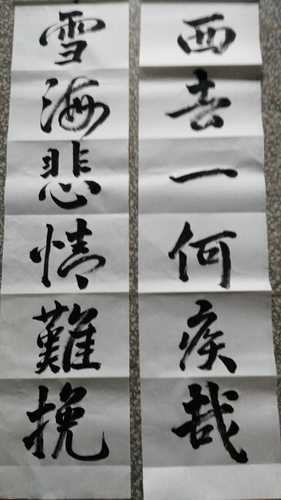 西去一何疾哉
雪海悲情難挽